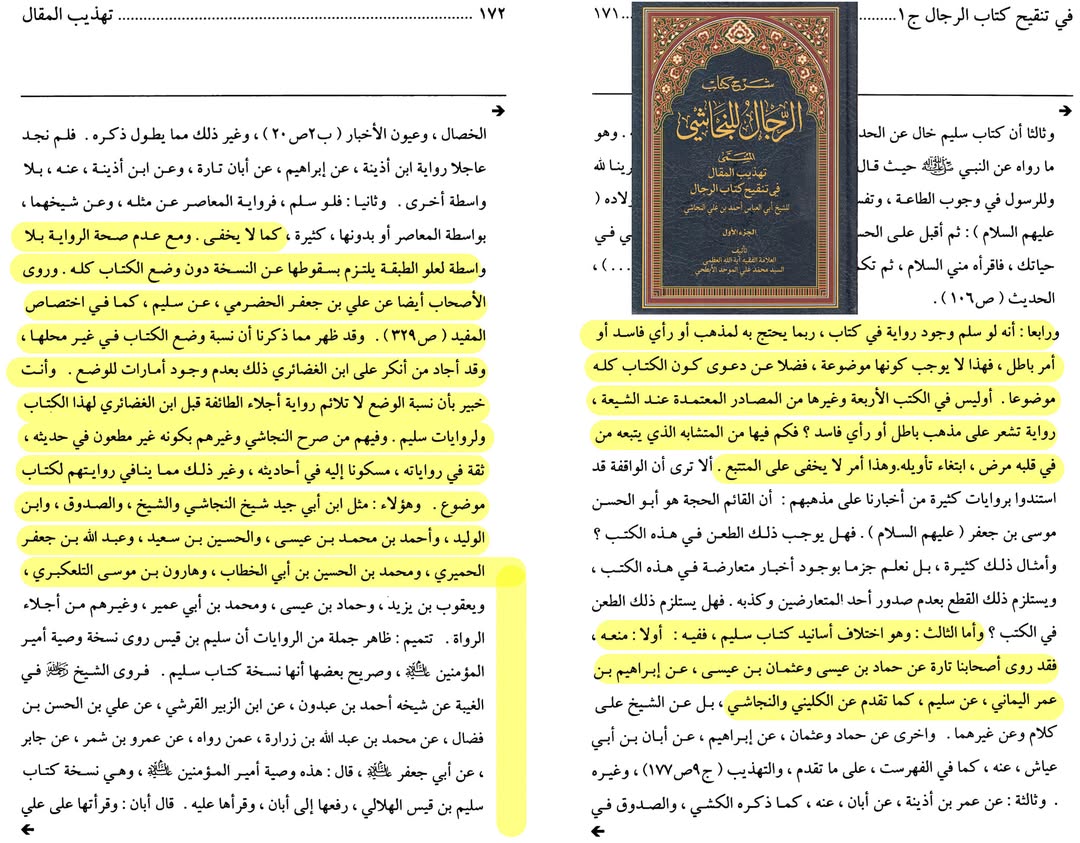 في تنقيح كتاب الرجال ج١ ......... ... ١٧١
وثالثا أن كتاب سليم خال عن الحد . وهو
ما رواه عن النبي ﷺ حيث قال رينا لله
وللرسول في وجوب الطاعة ، وتفس ولاده (
عليهم السلام ) : ثم أقبل على الحس ي في
حياتك ، فاقرأه مني السلام ، ثم تك ...) ،
الحديث ( ص١٠٦ ) .
ورابعا : أنه لو سلم وجود رواية في كتاب ، ربما يحتج به لمذهب أو رأي فاسد أو
أمر باطل ، فهذا لا يوجب كونها موضوعة ، فضلا عن دعوى كون الكتاب كله
موضوعا . أوليس في الكتب الأربعة وغيرها من المصادر المعتمدة عند الشيعة ،
رواية تشعر على مذهب باطل أو رأي فاسد ؟ فكم فيها من المتشابه الذي يتبعه من
في قلبه مرض ، ابتغاء تأويله.وهذا أمر لا يخفى على المتتبع . ألا ترى أن الواقفة قد
استندوا بروايات كثيرة من أخبارنا على مذهبهم : أن القائم الحجة هو أبو الحسن
موسى بن جعفر ( عليهم السلام ) . فهل يوجب ذلك الطعن في هذه الكتب ؟
وأمثال ذلك كثيرة ، بل نعلم جزما بوجود أخبار متعارضة في هذه الكتب ،
ويستلزم ذلك القطع بعدم صدور أحد المتعارضين وكذبه . فهل يستلزم ذلك الطعن
في الكتب ؟ وأما الثالث : وهو اختلاف أسانيد كتاب سليم ، ففيه : أولا : منعه ،
فقد روى أصحابنا تارة عن حماد بن عيسى وعثمان بن عيسى ، عن إبراهيم بن
عمر اليماني ، عن سليم ، كما تقدم عن الكليني والنجاشي ، بل عن الشيخ على
كلام وعن غيرهما . واخرى عن حماد وعثمان ، عن إبراهيم ، عن أبان بن أبي
عياش ، عنه ، كما في الفهرست ، على ما تقدم ، والتهذيب ( ج٩ص١٧٧) ، وغيره
. وثالثة : عن عمر بن أذينة ، عن أبان ، عنه ، كما ذكره الكشي ، والصدوق في
شرح كتاب
الرجال للنجاشي
المسمى
تهذيب المقال
في تنقيح كتاب الرجال
للشيخ أبي العباس أحمد بن علي النجاشي
الجزء الأول
تأليف
العلامة الفقيه آية الله العظمى
السيد محمد علي الموحد الأبطحي
١٧٢ ......... تهذيب المقال
الخصال ، وعيون الأخبار ( ب٢ص٢٠ ) ، وغير ذلك مما يطول ذكره . فلم نجد
عاجلا رواية ابن أذينة ، عن إبراهيم ، عن أبان تارة ، وعن ابن أذينة ، عنه ، بلا
واسطة أخرى . وثانيا : فلو سلم ، فرواية المعاصر عن مثله ، وعن شيخهما ،
بواسطة المعاصر أو بدونها ، كثيرة ، كما لا يخفى . ومع عدم صحة الرواية بلا
واسطة لعلو الطبقة يلتزم بسقوطها عن النسخة دون وضع الكتاب كله . وروى
الأصحاب أيضا عن علي بن جعفر الحضرمي ، عن سليم ، كما في اختصاص
المفيد ( ص٣٢٩ ) . وقد ظهر مما ذكرنا أن نسبة وضع الكتاب في غير محلها ،
وقد أجاد من أنكر على ابن الغضائري ذلك بعدم وجود أمارات للوضع . وأنت
خبير بأن نسبة الوضع لا تلائم رواية أجلاء الطائفة قبل ابن الغضائري لهذا الكتاب
ولروايات سليم . وفيهم من صرح النجاشي وغيرهم بكونه غير مطعون في حديثه ،
ثقة في رواياته ، مسكونا إليه في أحاديثه ، وغير ذلك مما ينافي روايتهم لكتاب
موضوع . وهؤلاء : مثل ابن أبي جيد شيخ النجاشي والشيخ ، والصدوق ، وابن
الوليد ، وأحمد بن محمد بن عيسى ، والحسين بن سعيد ، وعبد الله بن جعفر
الحميري ، ومحمد بن الحسين بن أبي الخطاب ، وهارون بن موسى التلعكبري ،
ويعقوب بن يزيد ، وحماد بن عيسى ، ومحمد بن أبي عمير ، وغيرهم من أجلاء
الرواة . تتميم : ظاهر جملة من الروايات أن سليم بن قيس روى نسخة وصية أمير
المؤمنين ﵇ ، وصريح بعضها أنها نسخة كتاب سليم . فروى الشيخ ﵀ في
الغيبة عن شيخه أحمد بن عبدون ، عن ابن الزبير القرشي ، عن علي بن الحسن بن
فضال ، عن محمد بن عبد الله بن زرارة ، عمن رواه ، عن عمرو بن شمر ، عن جابر
، عن أبي جعفر ﵇ ، قال : هذه وصية أمير المؤمنين ﵇ ، وهي نسخة كتاب
سليم بن قيس الهلالي ، رفعها إلى أبان ، وقرأها عليه . قال أبان : وقرأتها على علي